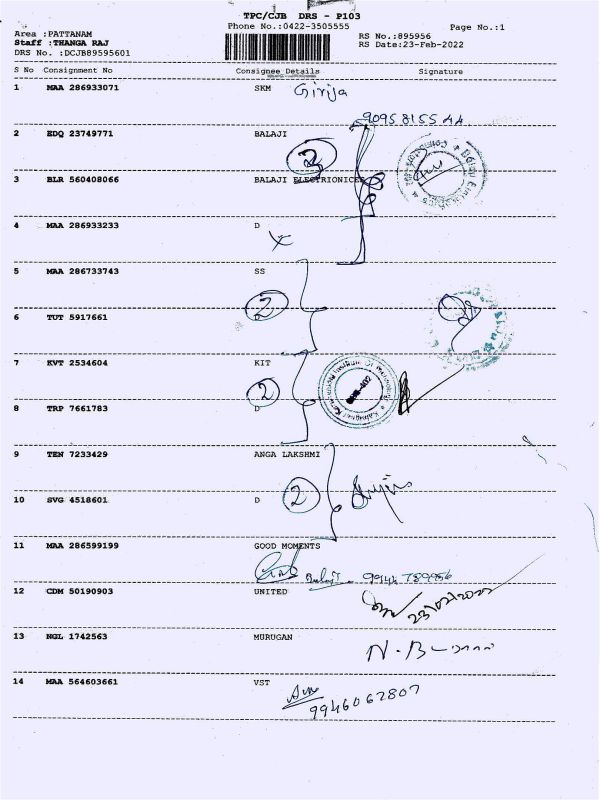 TPC/CJB DRS - P103
Phone No.:0422-3505555
Page No.:1
Area :PATTANAM
RS No.:895956
Staff :THANGA RAJ
RS Date:23-Feb-2022
DRS No. :DCJB89595601
S No Consignment No Consignee Details Signature
1 MAA 286933071 SKM Girija
9095815544
2 EDQ 23749771 BALAJI
2
3 BLR 560408066 BALAJI ELECTRIONICES
4 MAA 286933233 D
5 MAA 286733743 SS
2
6 TUT 5917661 D
7 KVT 2534604 KIT
2
8 TRP 7661783 D
9 TEN 7233429 ANGA LAKSHMI
2
10 SVG 4518601 D
11 MAA 286599199 GOOD MOMENTS
Balaji
12 CDM 50190903 UNITED
23/02/2022
13 NGL 1742563 MURUGAN
14 MAA 564603661 VST
9946062807